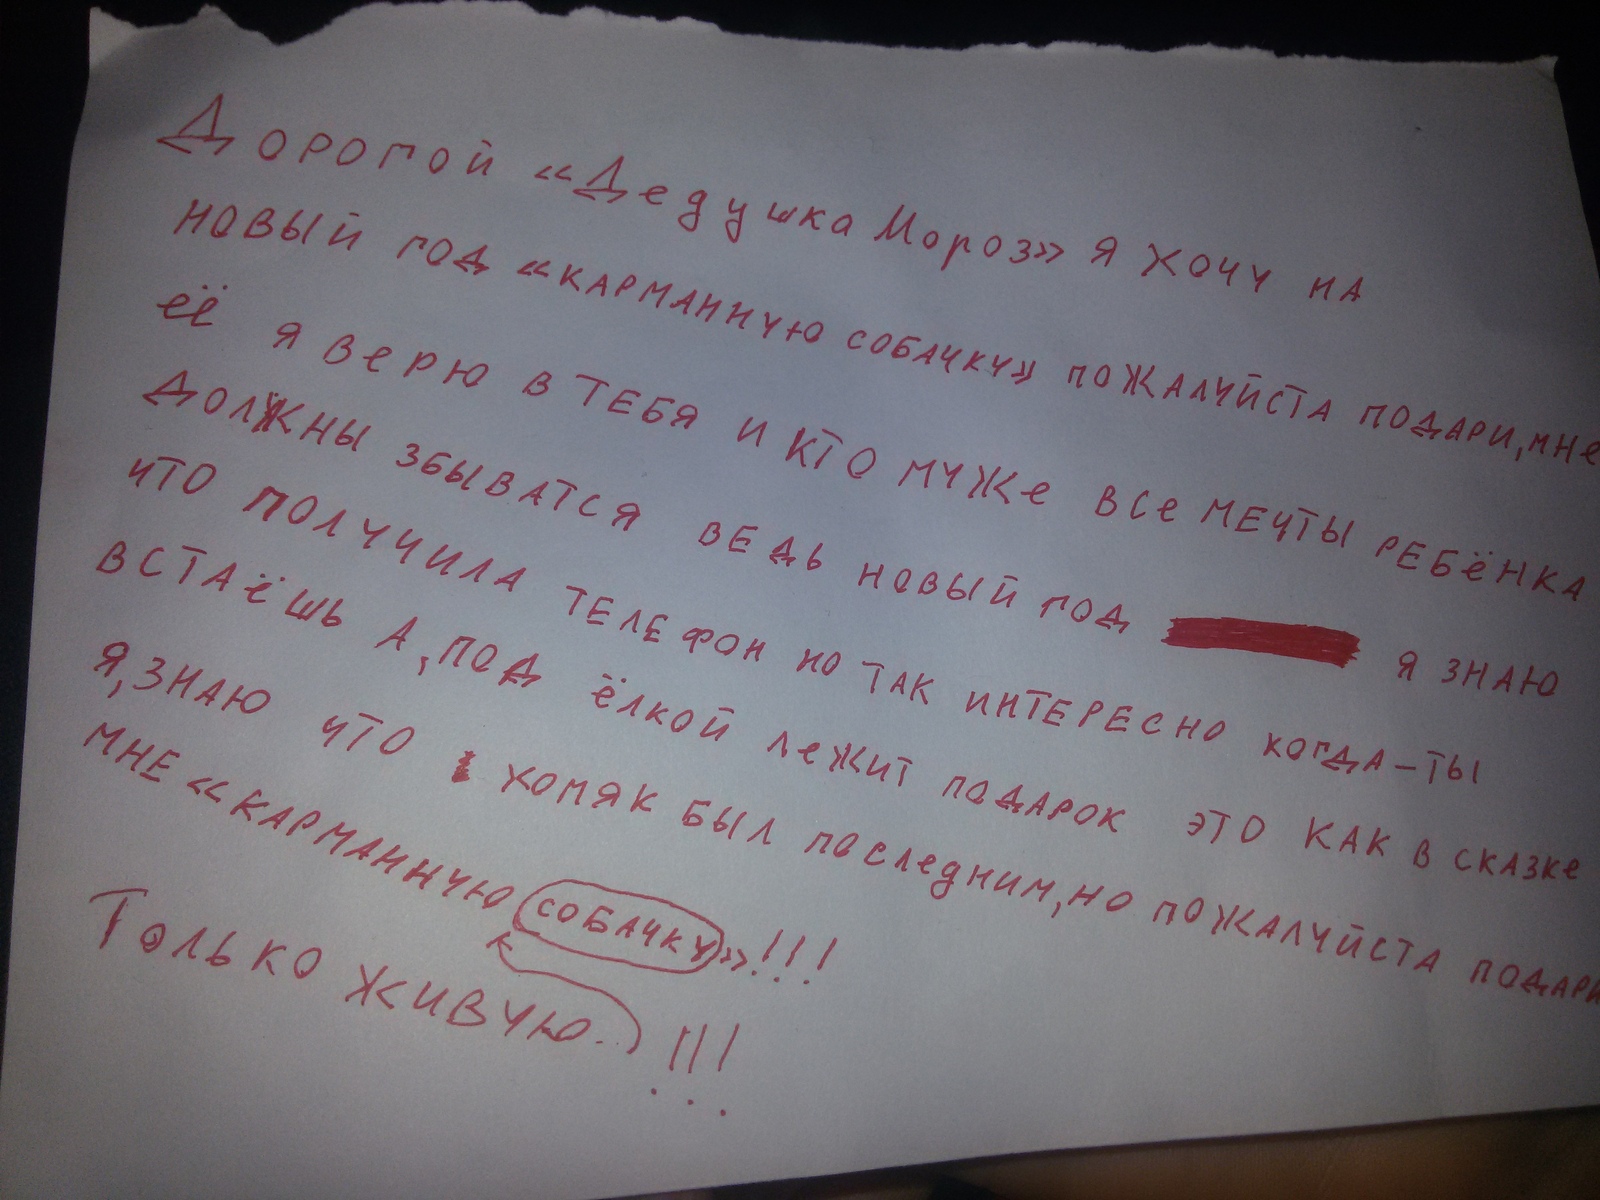 Дорогой «Дедушка Мороз» я хочу на
новый год «карманную собачку» пожалуйста подари, мне
её я верю в тебя и кто муже все мечты ребёнка
должны збыватся ведь новый год я знаю
что получила телефон но так интересно когда-ты
встаёшь а, под ёлкой лежит подарок это как в сказке
я, знаю что хомяк был последним, но пожалуйста подари
мне «карманную собачку»!!!
Только живую..!!!